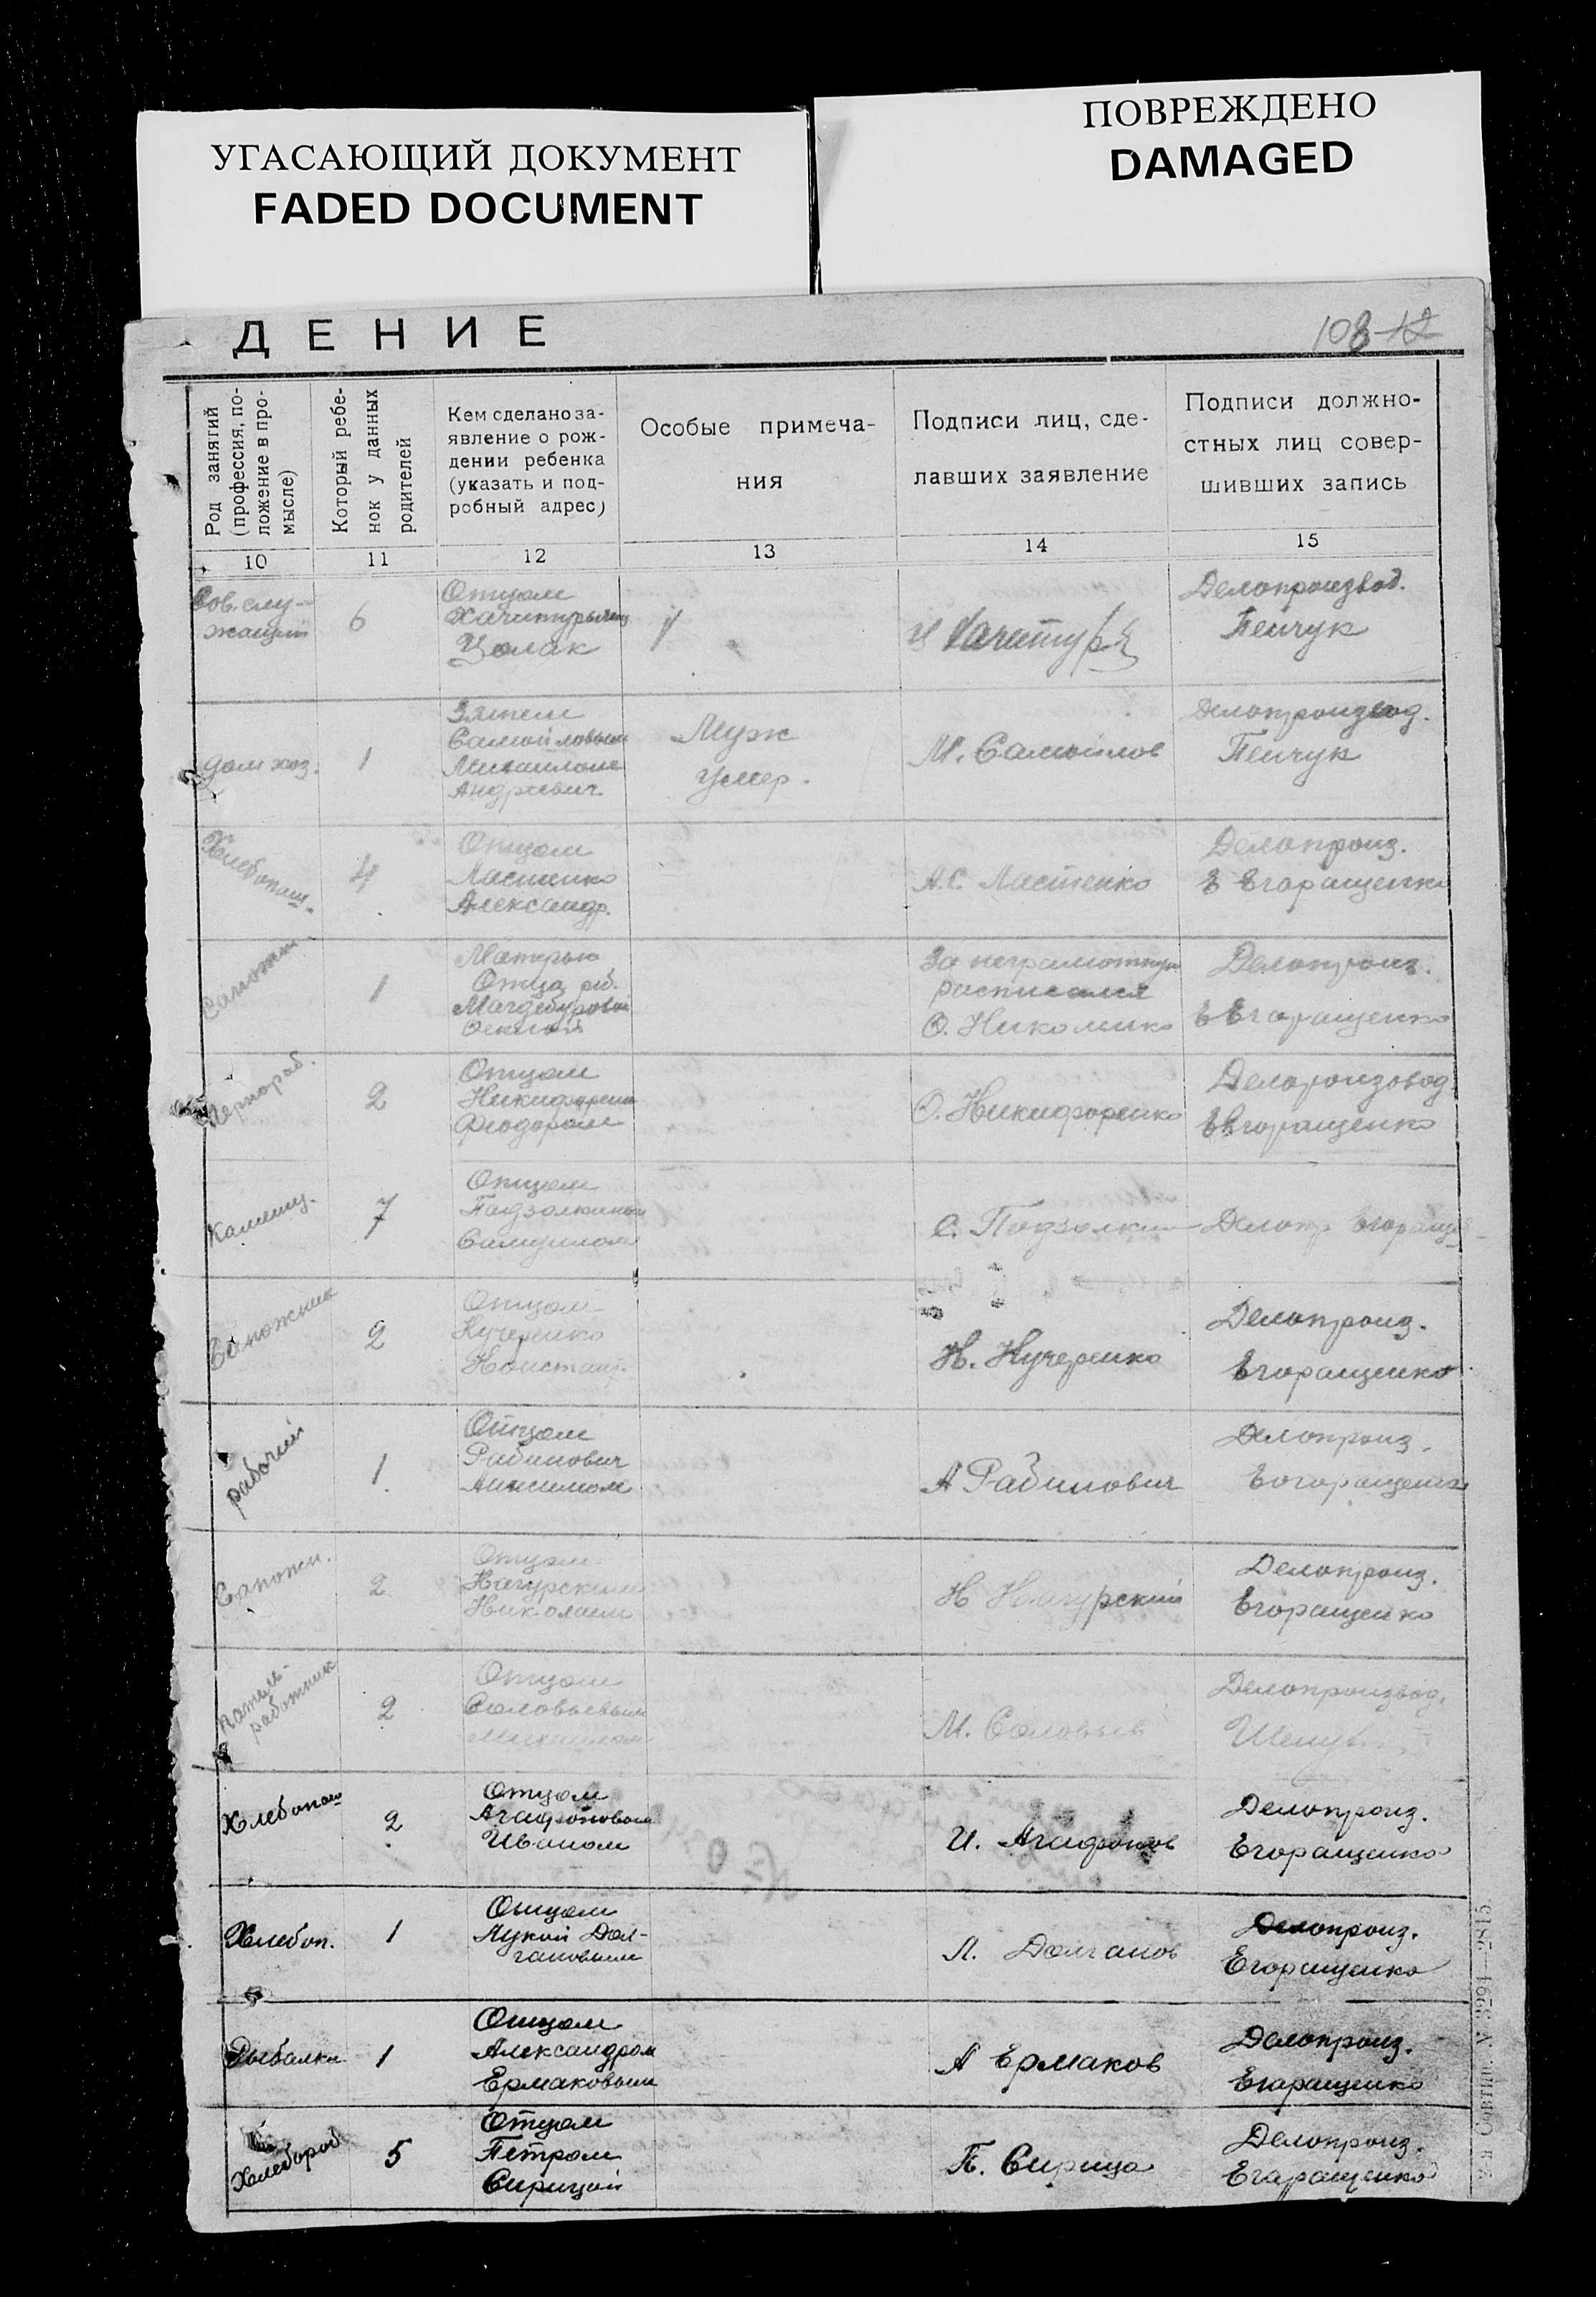 УГАСАЮЩИЙ ДОКУМЕНТ
FADED DOCUMENT
ПОВРЕЖДЕНО
DAMAGED
ДЕНИЕ
108
Род занятий
(профессия, по-
ложение в про-
мысле)
Который ребе-
нок у данных
родителей
Кем сделано за-
явление о рож-
дении ребенка
(указать и под-
робный адрес)
Особые примеча-
ния
Подписи лиц, сде-
лавших заявление
Подписи должно-
стных лиц совер-
шивших запись
10
11
12
13
14
15
Сов. слу-
жащий
6
Отцом
Цолак
Делопроизвод.
Пейчук
дом хоз.
1
Зятем
Самойловым
Михаилом
Андреевич
Муж
умер.
М. Самойлов
Делопроизвод.
Пейчук
Хлебопаш.
4
Отцом
Ластенко
Александр.
А.С. Ластенко
Делопроиз.
Е Егоращенко
Сапожн.
1
Матерью
Отца реб.
За неграмотную
расписался
Делопроиз.
Е Егоращенко
Чернораб.
2
Отцом
Никифоренко
Феодором
Ф. Никифоренко
Делопроизовод
Е Егоращенко
7
Отцом
Самуилом
С. Подзолкин
Делопр Егоращ
Сапожник
2
Отцом
Кучеренко
Констант.
К. Кучеренко
Делопроиз.
Егоращенко
рабочий
1
Отцом
Рабинович
А Рабинович
Делопроиз.
Егоращенко
Сапожн.
2
Отцом
Качурским
Николаем
Н Качурский
Делопроиз.
Егоращенко
работник
2
Отцом
Соловьевым
Михаилом
М. Соловьев
Делопроизвод.
Хлебопаш
2
Отцом
Агафоновым
Иваном
И. Агафонов
Делопроиз.
Егоращенко
Хлебоп.
1
Отцом
Лукой Дол-
гановым
Л. Долганов
Делопроиз.
Егоращенко
Рыбалка
1
Отцом
Александром
Ермаковым
А Ермаков
Делопроиз.
Егоращенко
Хлебороб
5
Отцом
Петром
Сирицой
П. Сирица
Делопроиз.
Егаращенко